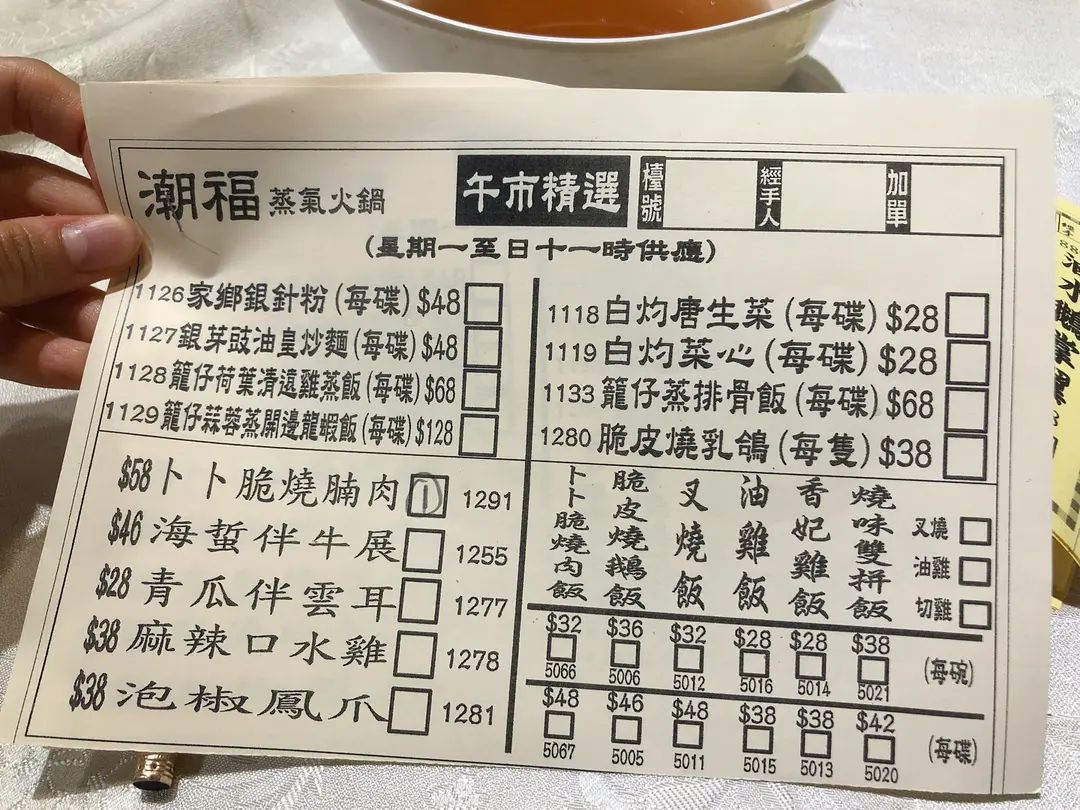 潮福 蒸氣火鍋 午市精選 檯號 經手人 加單
(星期一至日十一時供應)
1126 家鄉銀針粉 (每碟) $48
1127 銀芽豉油皇炒麵 (每碟) $48
1128 籠仔荷葉清遠雞蒸飯 (每碟) $68
1129 籠仔蒜蓉蒸開邊龍蝦飯 (每碟) $128
1118 白灼唐生菜 (每碟) $28
1119 白灼菜心 (每碟) $28
1133 籠仔蒸排骨飯 (每碟) $68
1280 脆皮燒乳鴿 (每隻) $38
$58 卜卜脆燒腩肉 1 1291
$46 海蜇伴牛展 1255
$28 青瓜伴雲耳 1277
$38 麻辣口水雞 1278
$38 泡椒鳳爪 1281
卜卜脆燒肉飯
脆皮燒鵝飯
叉燒飯
油雞飯
香妃雞飯
燒味雙拼飯
叉燒
油雞
切雞
$32 $36 $32 $28 $28 $38 (每碗)
5066 5006 5012 5016 5014 5021
$48 $46 $48 $38 $38 $42 (每碟)
5067 5005 5011 5015 5013 5020